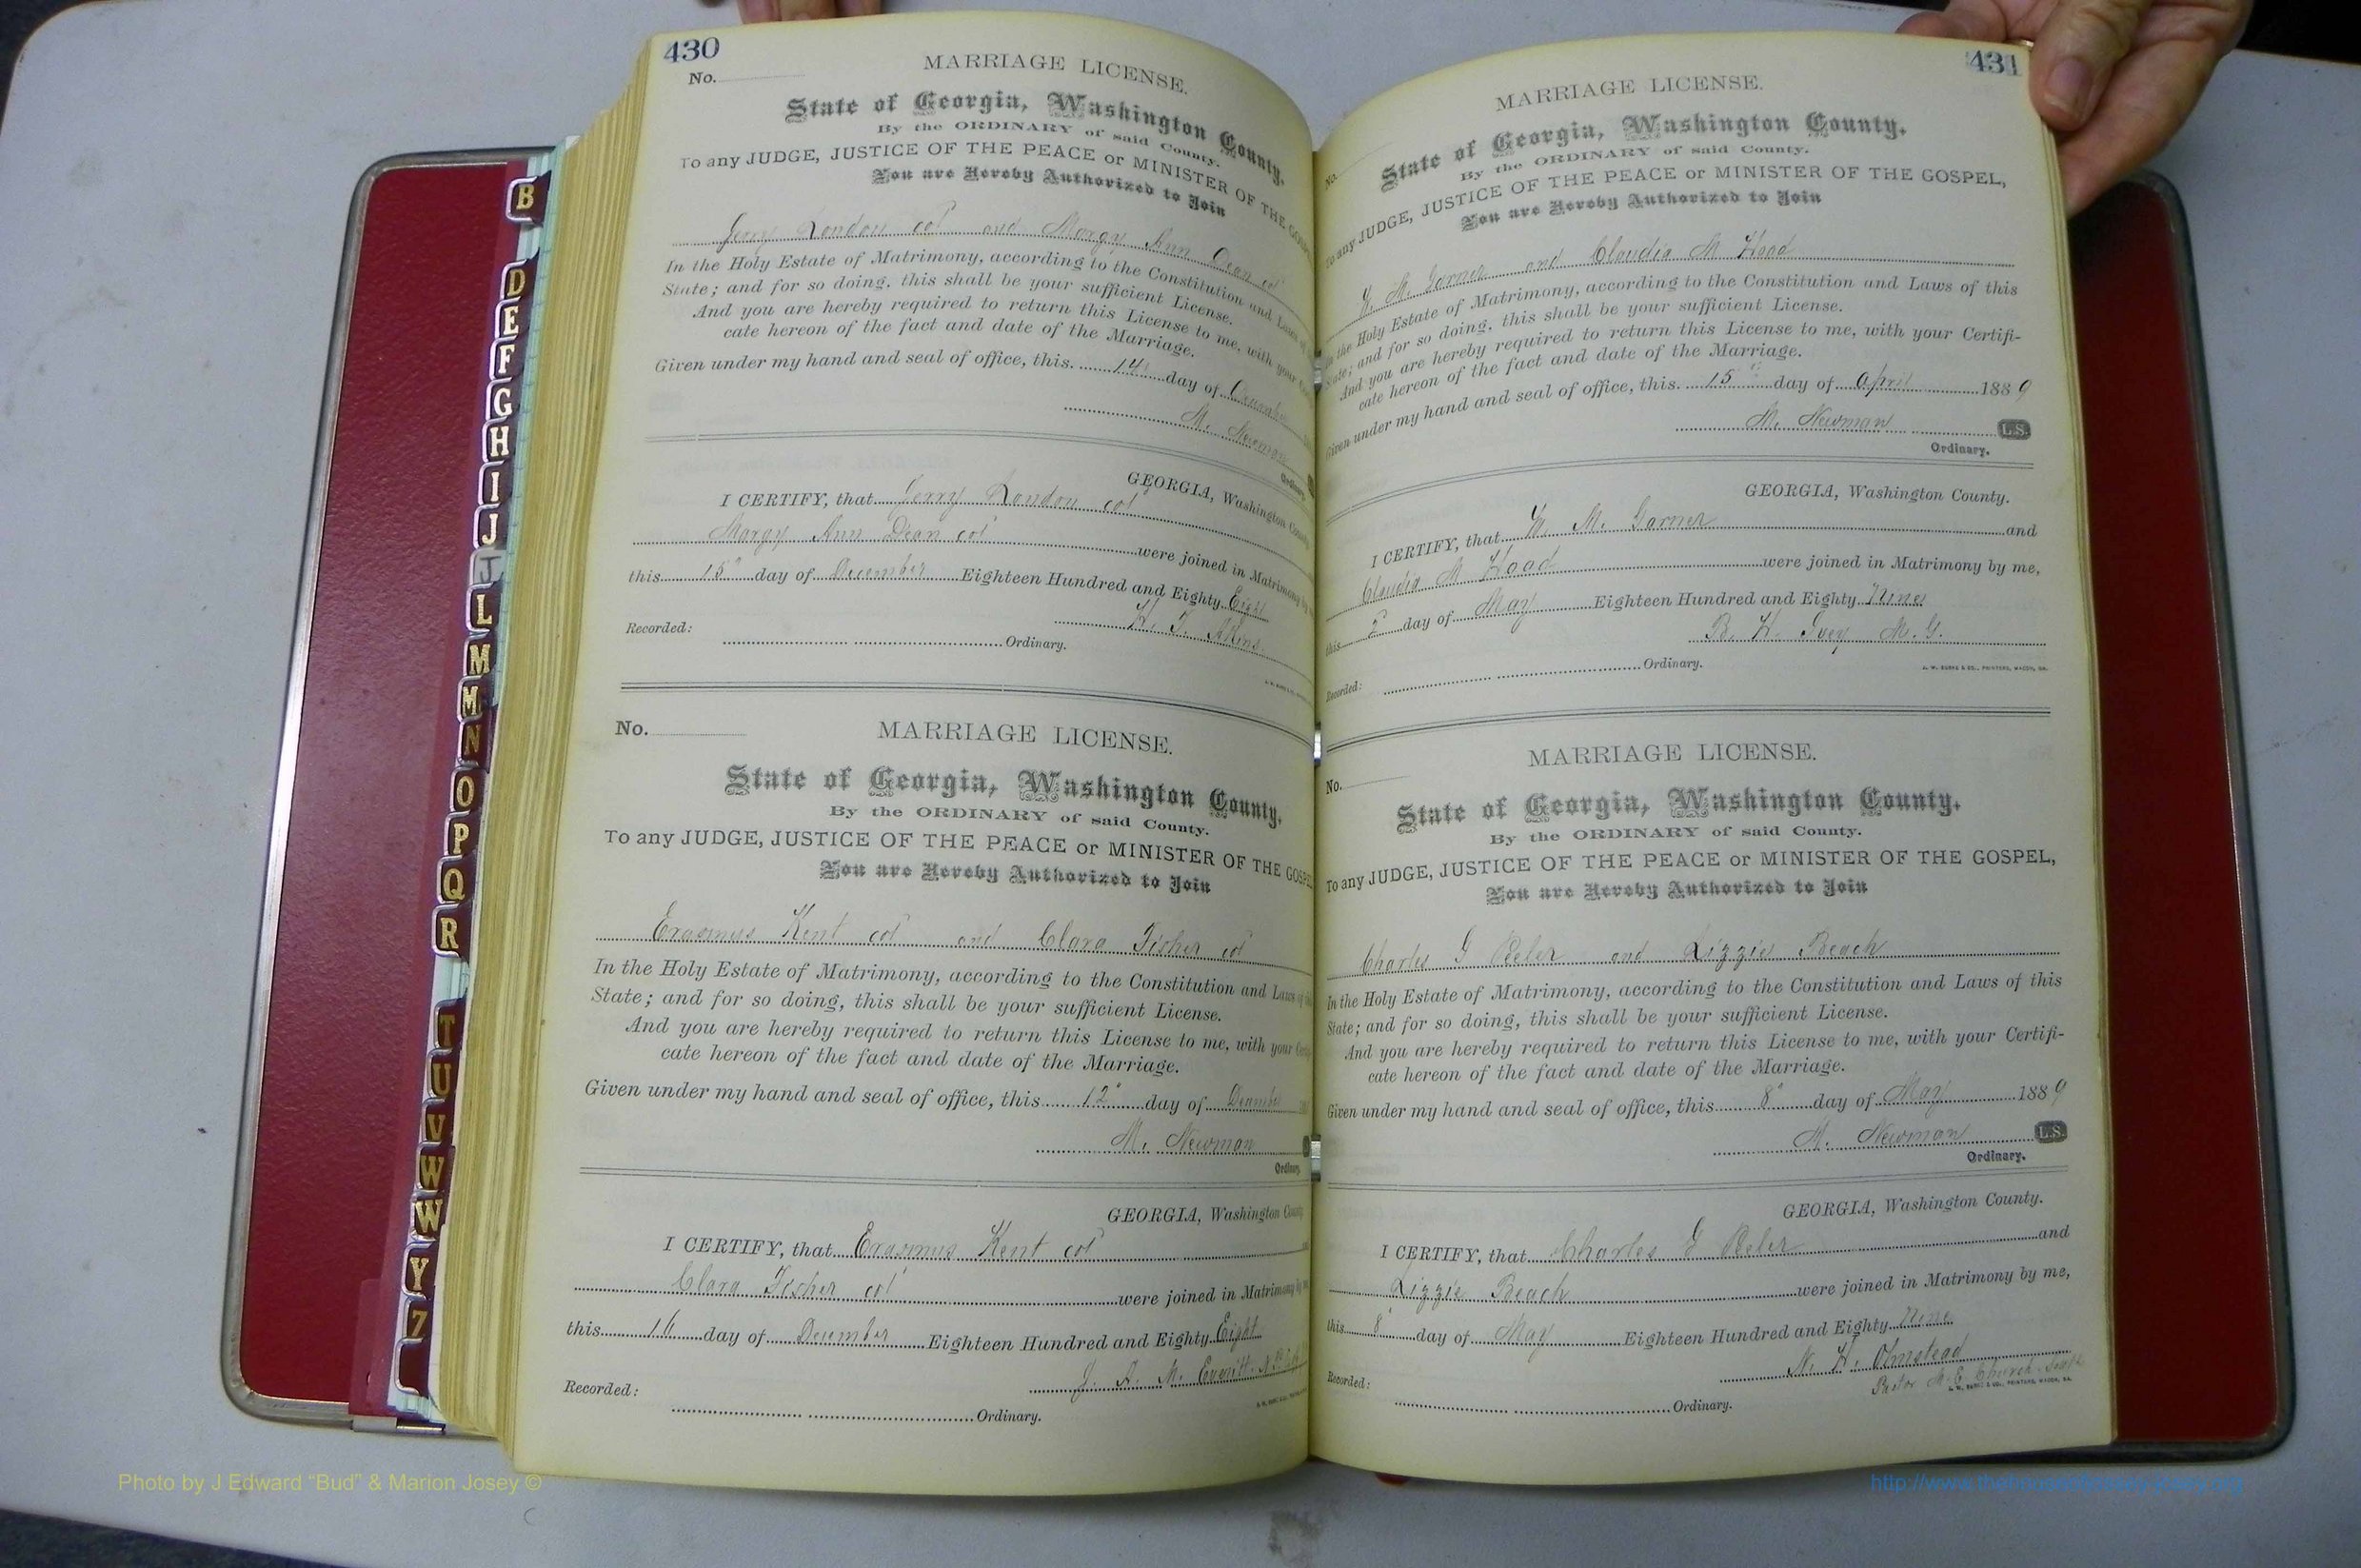 430
No.
MARRIAGE LICENSE.
State of Georgia, Washington County.
By the ORDINARY of said County.
To any JUDGE, JUSTICE OF THE PEACE or MINISTER OF THE
You are Hereby Authorized to Join
Jerry London col and Margy Ann Dean col
In the Holy Estate of Matrimony, according to the Constitution and Laws of
State; and for so doing, this shall be your sufficient License.
And you are hereby required to return this License to me, with your
cate hereon of the fact and date of the Marriage.
Given under my hand and seal of office, this 14 day of December
M. Newman
Ordinary.
GEORGIA, Washington
I CERTIFY, that Jerry London col
Margy Ann Dean col were joined in Matrimony by
this 15" day of December Eighteen Hundred and Eighty Eight
H. T. Akins
Recorded: Ordinary.
No.
MARRIAGE LICENSE.
State of Georgia, Washington County.
By the ORDINARY of said County.
To any JUDGE, JUSTICE OF THE PEACE or MINISTER OF THE
You are Hereby Authorized to Join
Erasmus Kent col and Clara Fisher col
In the Holy Estate of Matrimony, according to the Constitution and Laws of
State; and for so doing, this shall be your sufficient License.
And you are hereby required to return this License to me, with your
cate hereon of the fact and date of the Marriage.
Given under my hand and seal of office, this 12" day of December
M. Newman
Ordinary.
GEORGIA, Washington
I CERTIFY, that Erasmus Kent col
Clara Fisher col were joined in Matrimony
this 16 day of December Eighteen Hundred and Eighty Eight
J. A. M. Everitt
Recorded: Ordinary.
431
No.
MARRIAGE LICENSE.
State of Georgia, Washington County.
By the ORDINARY of said County.
To any JUDGE, JUSTICE OF THE PEACE or MINISTER OF THE GOSPEL,
You are Hereby Authorized to Join
M. Garner and Claudia M Hood
the Holy Estate of Matrimony, according to the Constitution and Laws of this
State; and for so doing, this shall be your sufficient License.
And you are hereby required to return this License to me, with your Certifi-
cate hereon of the fact and date of the Marriage.
Given under my hand and seal of office, this 15 day of April 1889
M. Newman L.S.
Ordinary.
GEORGIA, Washington County.
I CERTIFY, that M. Garner and
Claudia M Hood were joined in Matrimony by me,
this 2" day of May Eighteen Hundred and Eighty Nine
B. H. Ivey M.G.
Recorded: Ordinary.
J. W. BURKE & CO., PRINTERS, MACON, GA.
No.
MARRIAGE LICENSE.
State of Georgia, Washington County.
By the ORDINARY of said County.
To any JUDGE, JUSTICE OF THE PEACE or MINISTER OF THE GOSPEL,
You are Hereby Authorized to Join
Charles G Peeler and Lizzie Beach
In the Holy Estate of Matrimony, according to the Constitution and Laws of this
State; and for so doing, this shall be your sufficient License.
And you are hereby required to return this License to me, with your Certifi-
cate hereon of the fact and date of the Marriage.
Given under my hand and seal of office, this 8" day of May 1889
M. Newman L.S.
Ordinary.
GEORGIA, Washington County.
I CERTIFY, that Charles G Peeler and
Lizzie Beach were joined in Matrimony by me,
this 8" day of May Eighteen Hundred and Eighty Nine
N. H. Olmstead
Pastor M. E. Church South
Recorded: Ordinary.
B
D
E
F
G
H
I
J
J
L
M
M
N
O
P
Q
R
T
U
V
W
W
Y
7
Photo by J Edward “Bud” & Marion Josey ©